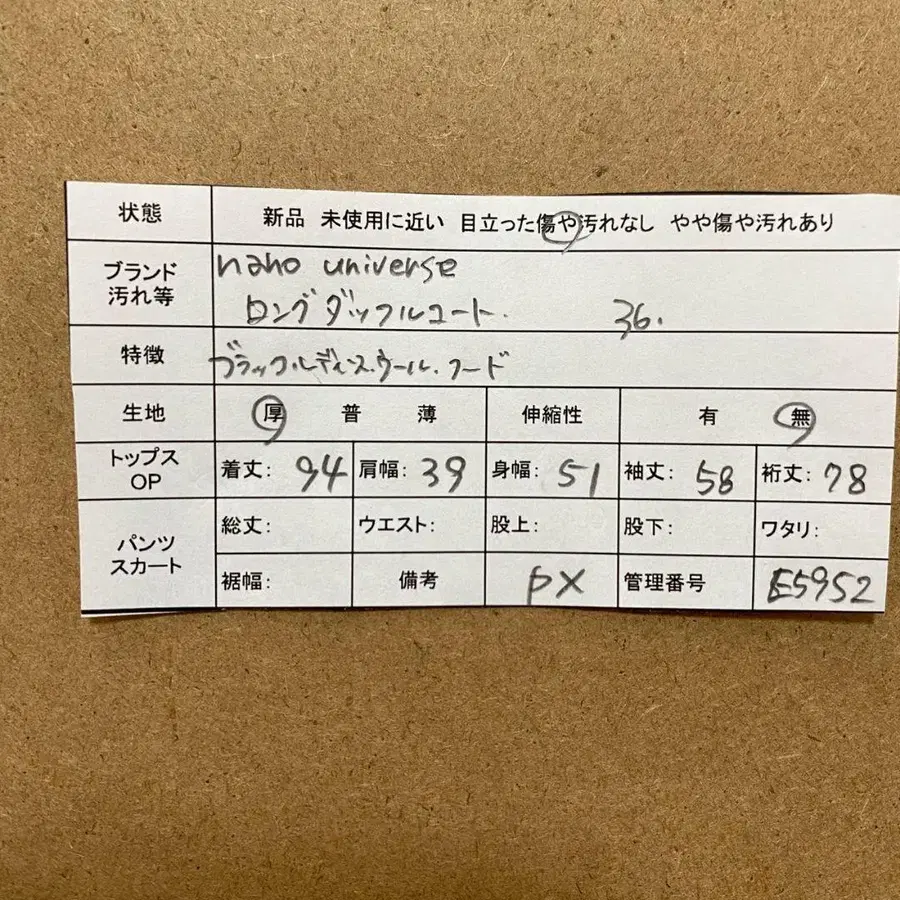 状態 新品 未使用に近い 目立った傷や汚れなし やや傷や汚れあり
ブランド nano universe
汚れ等 ロングダッフルコート. 36.
特徴 ブラック.レディース.ウール.フード
生地 厚 普 薄 伸縮性 有 無
トップス OP 着丈: 94 肩幅: 39 身幅: 51 袖丈: 58 裄丈: 78
パンツ スカート 総丈: ウエスト: 股上: 股下: ワタリ:
裾幅: 備考 PX 管理番号 E5952